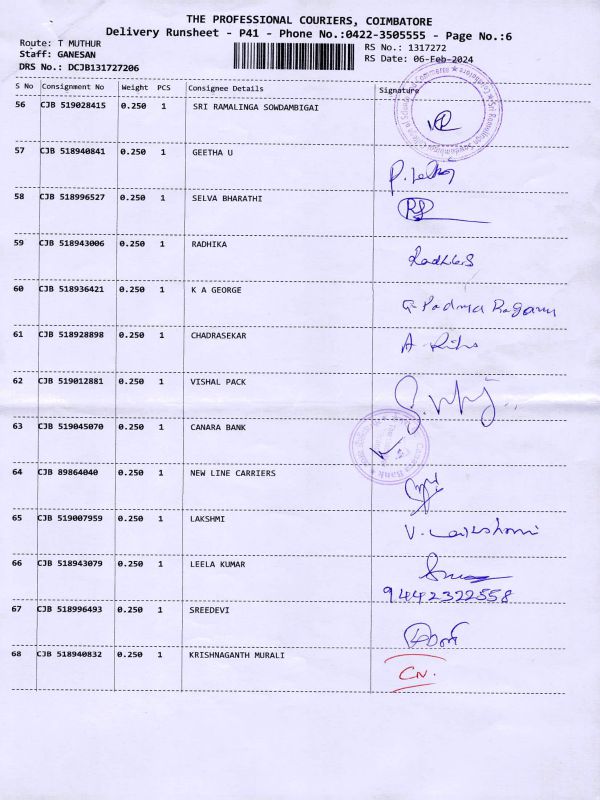 THE PROFESSIONAL COURIERS, COIMBATORE
Delivery Runsheet - P41 - Phone No.:0422-3505555 - Page No.:6
Route: T MUTHUR RS No.: 1317272
Staff: GANESAN RS Date: 06-Feb-2024
DRS No.: DCJB131727206
S No Consignment No Weight PCS Consignee Details Signature
56 CJB 519028415 0.250 1 SRI RAMALINGA SOWDAMBIGAI
57 CJB 518940841 0.250 1 GEETHA U
58 CJB 518996527 0.250 1 SELVA BHARATHI
59 CJB 518943006 0.250 1 RADHIKA
60 CJB 518936421 0.250 1 K A GEORGE
61 CJB 518928898 0.250 1 CHADRASEKAR
62 CJB 519012881 0.250 1 VISHAL PACK
63 CJB 519045070 0.250 1 CANARA BANK
64 CJB 89864040 0.250 1 NEW LINE CARRIERS
65 CJB 519007959 0.250 1 LAKSHMI V. Lakshmi
66 CJB 518943079 0.250 1 LEELA KUMAR
9442322558
67 CJB 518996493 0.250 1 SREEDEVI
68 CJB 518940832 0.250 1 KRISHNAGANTH MURALI CN.